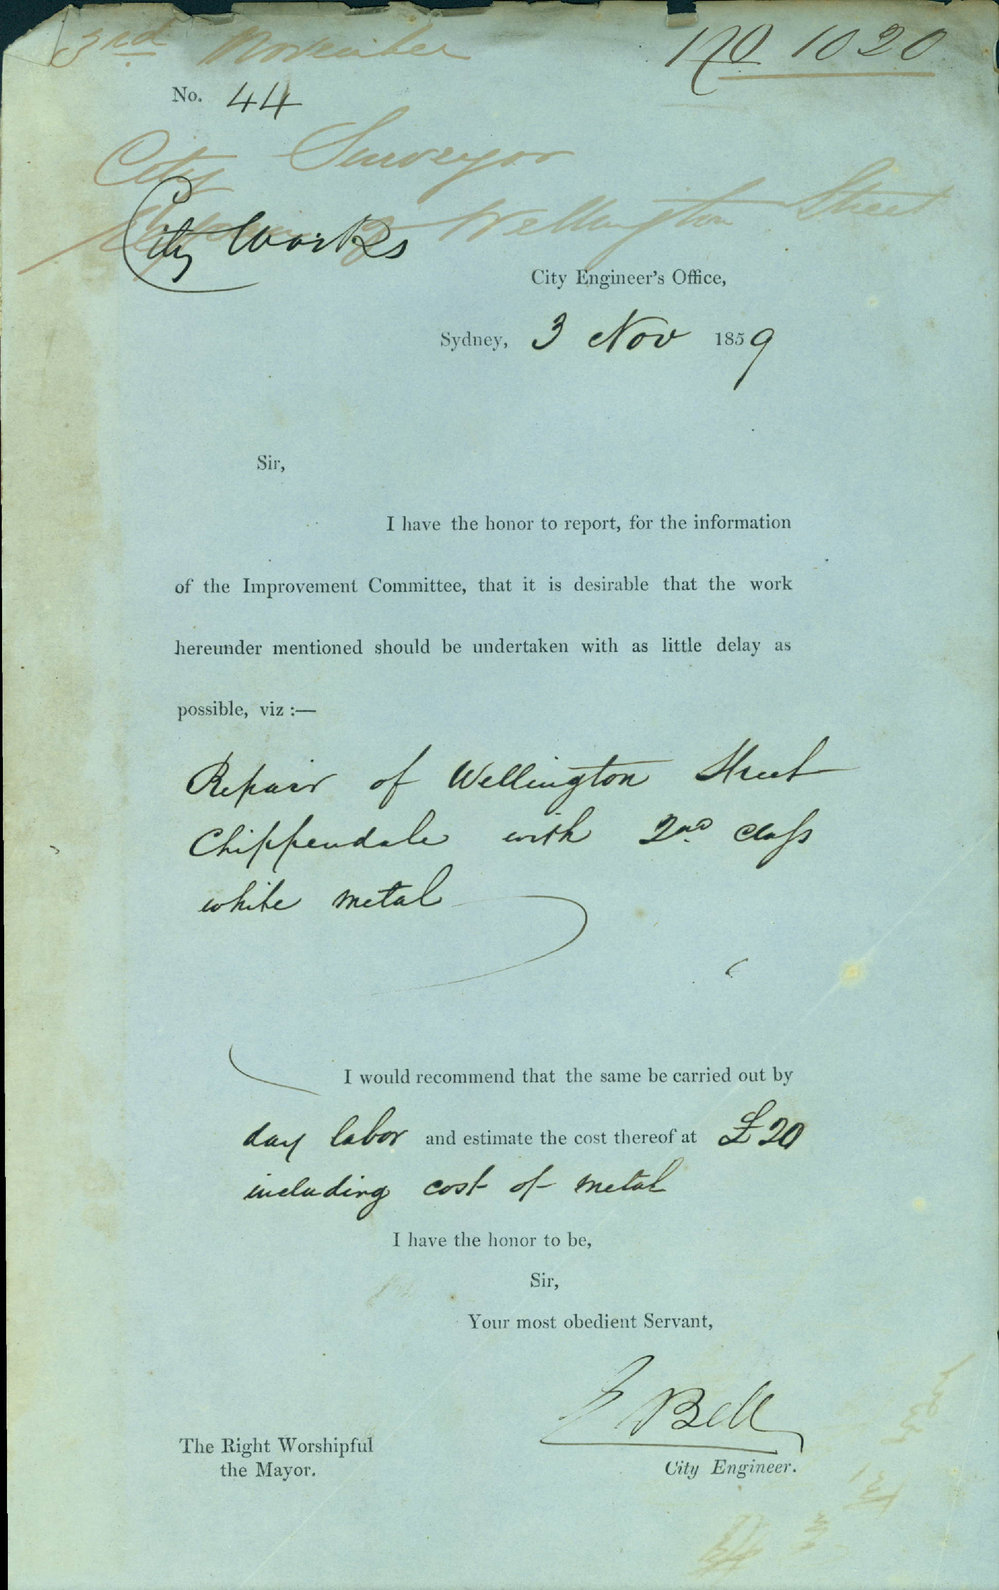 3rd November
No 1020
No. 44
City Surveyor
Wellington Street
City Works
City Engineer's Office,
Sydney, 3 Nov 1859
Sir,
I have the honor to report, for the information
of the Improvement Committee, that it is desirable that the work
hereunder mentioned should be undertaken with as little delay as
possible, viz :—
Repair of Wellington Street
Chippendale with 2nd class
white metal
I would recommend that the same be carried out by
day labor and estimate the cost thereof at £20
including cost of metal
I have the honor to be,
Sir,
Your most obedient Servant,
E Bell
The Right Worshipful
the Mayor.
City Engineer.